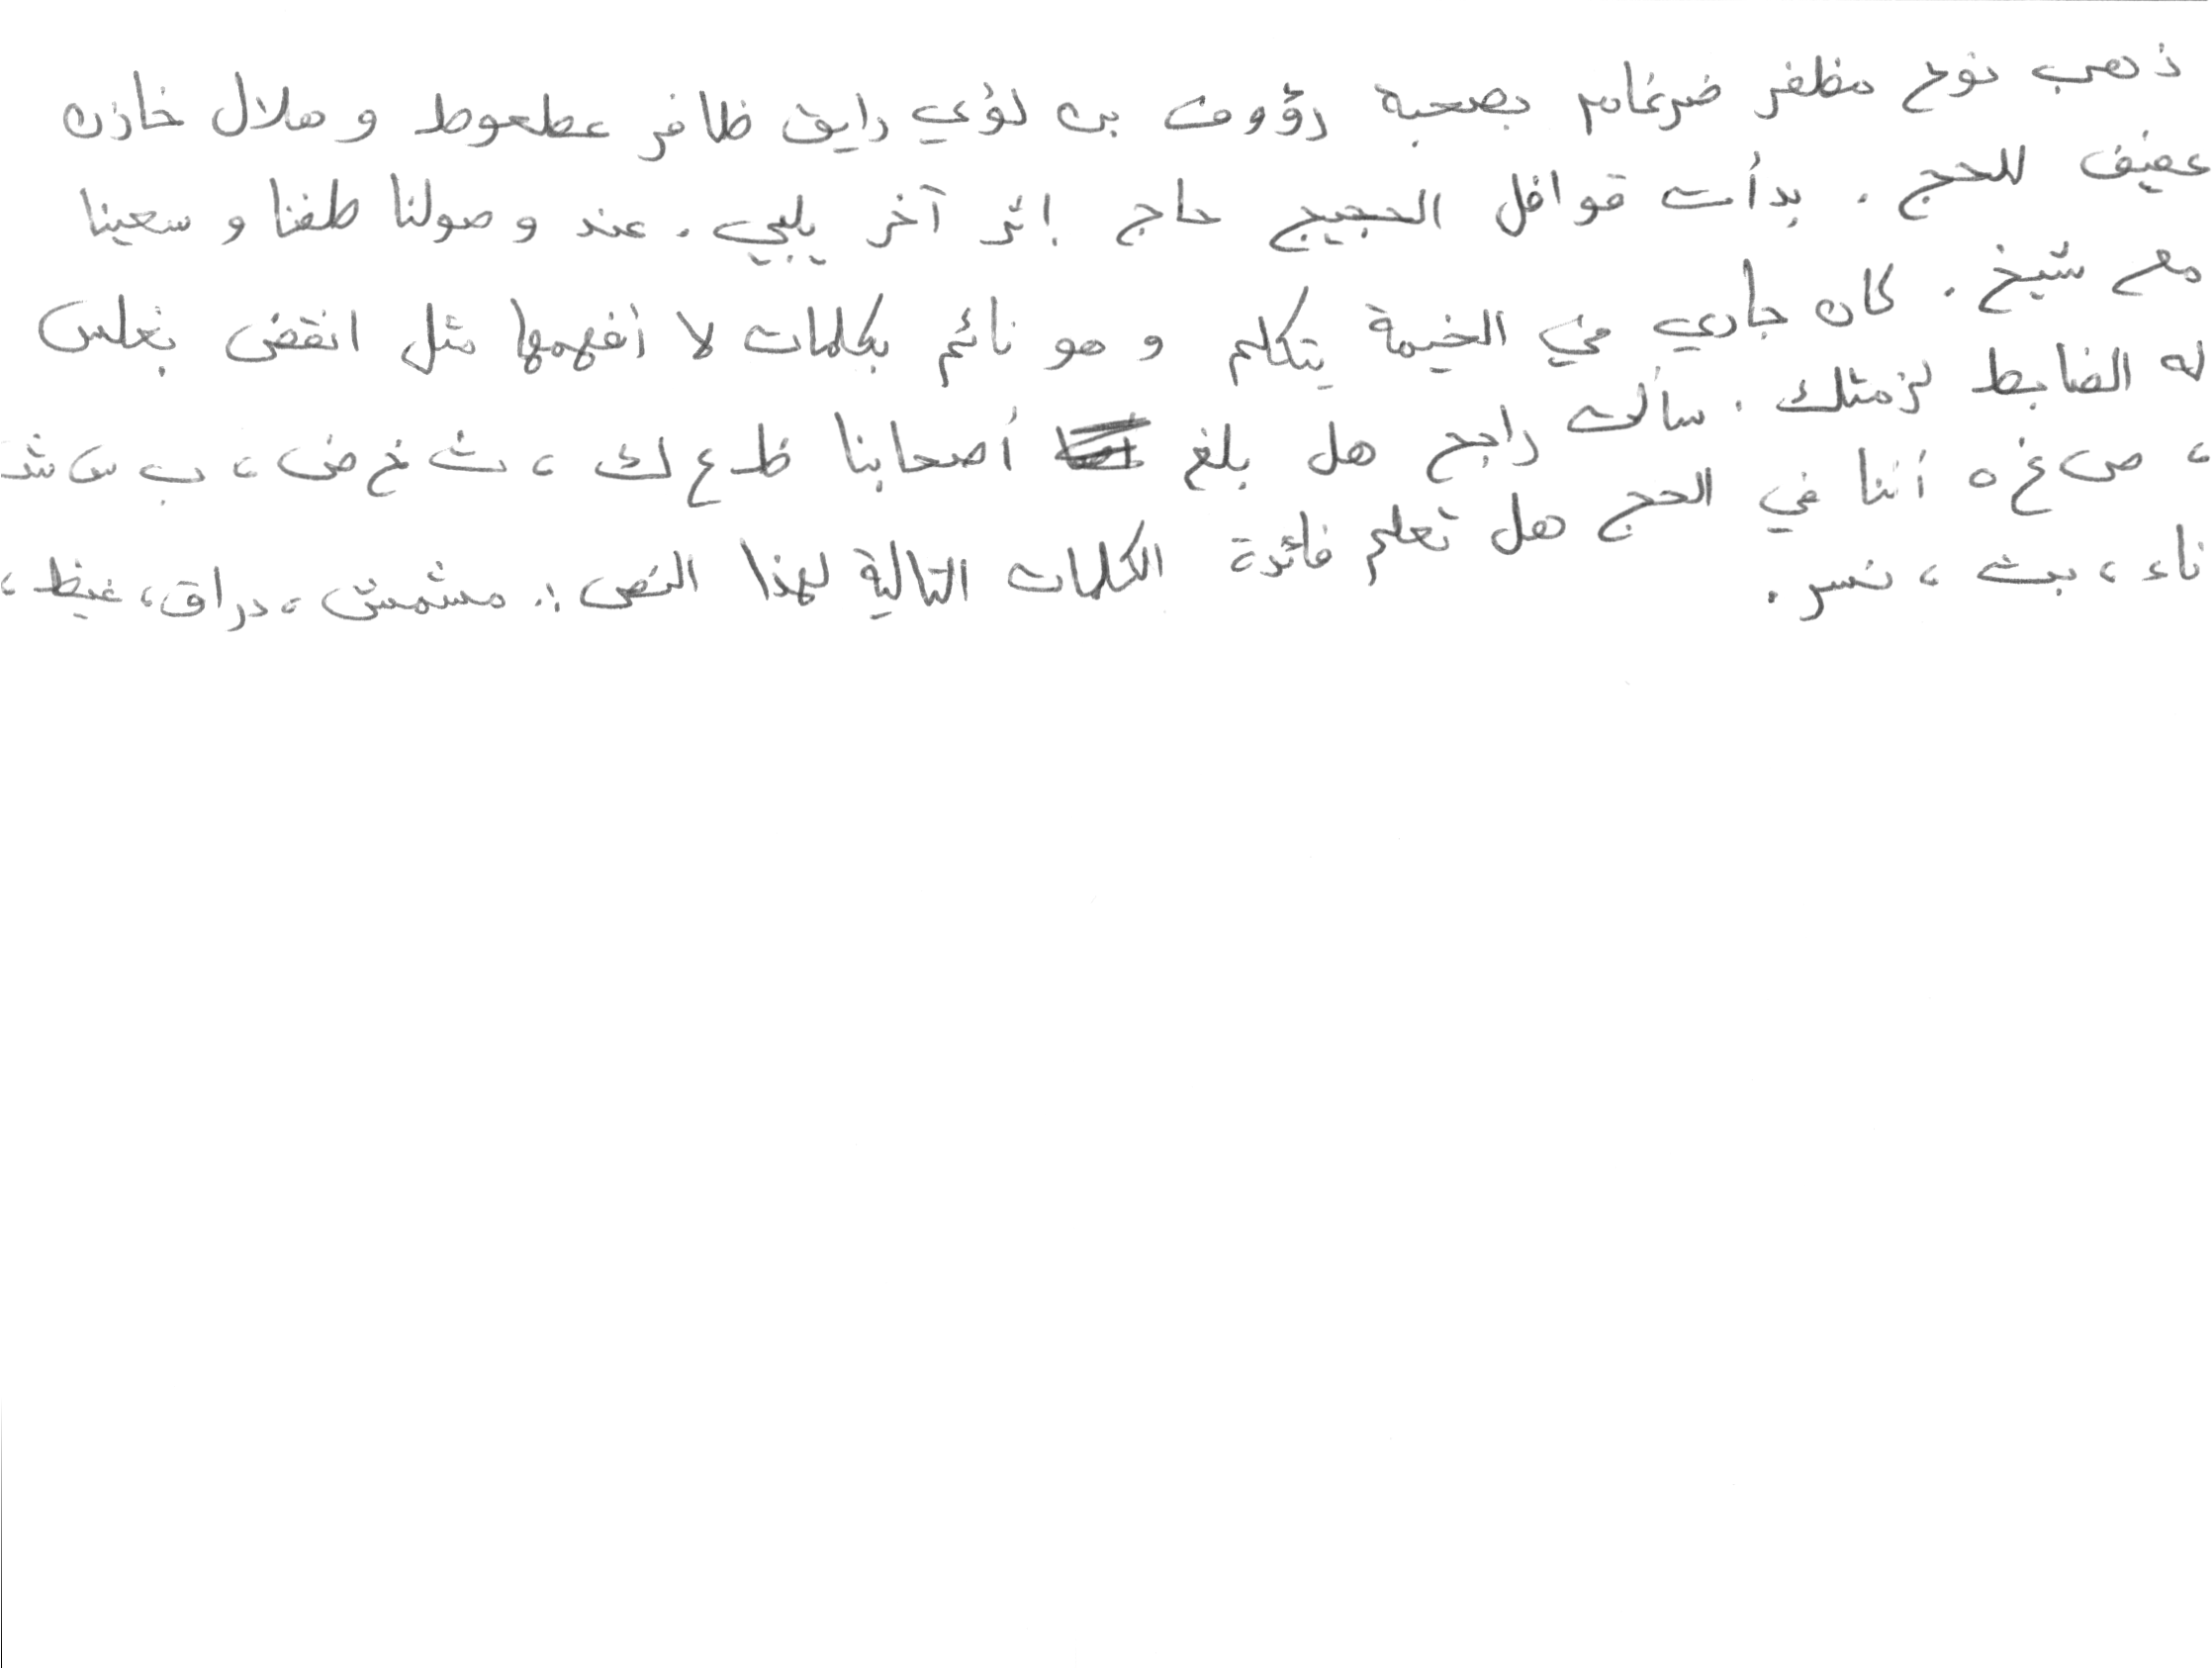 ذهب نوح مظفر ضرغام بصحبة رؤوف بن لؤي رايق ظافر عطعوط و هلال خازن
عفيف للحج . بدأت قوافل الحجيج حاج إثر آخر يلبي . عند وصولنا طفنا و سعينا
مع شيخ . كان جاري في الخيمة يتكلم و هو نائم بكلمات لا أفهمها مثل انقض بغلس
له الضابط لزمثلك . سألت راجح هل بلغ أصحابنا ظ ع ك ، ث خ ض ، ب س ش
، ص غ ه أننا في الحج هل تعلم فائدة الكلمات التالية لهذا النص : مشمش ، دراق ، غيظ ،
ناء ، بث ، نسر .